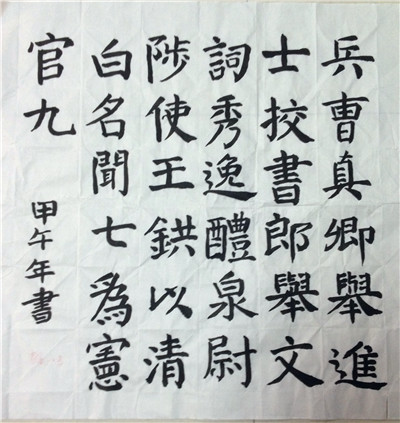 兵曹真卿舉進
士挍書郎舉文
詞秀逸醴泉尉
陟使王鉷以清
白名聞七爲憲
官九
甲午年書